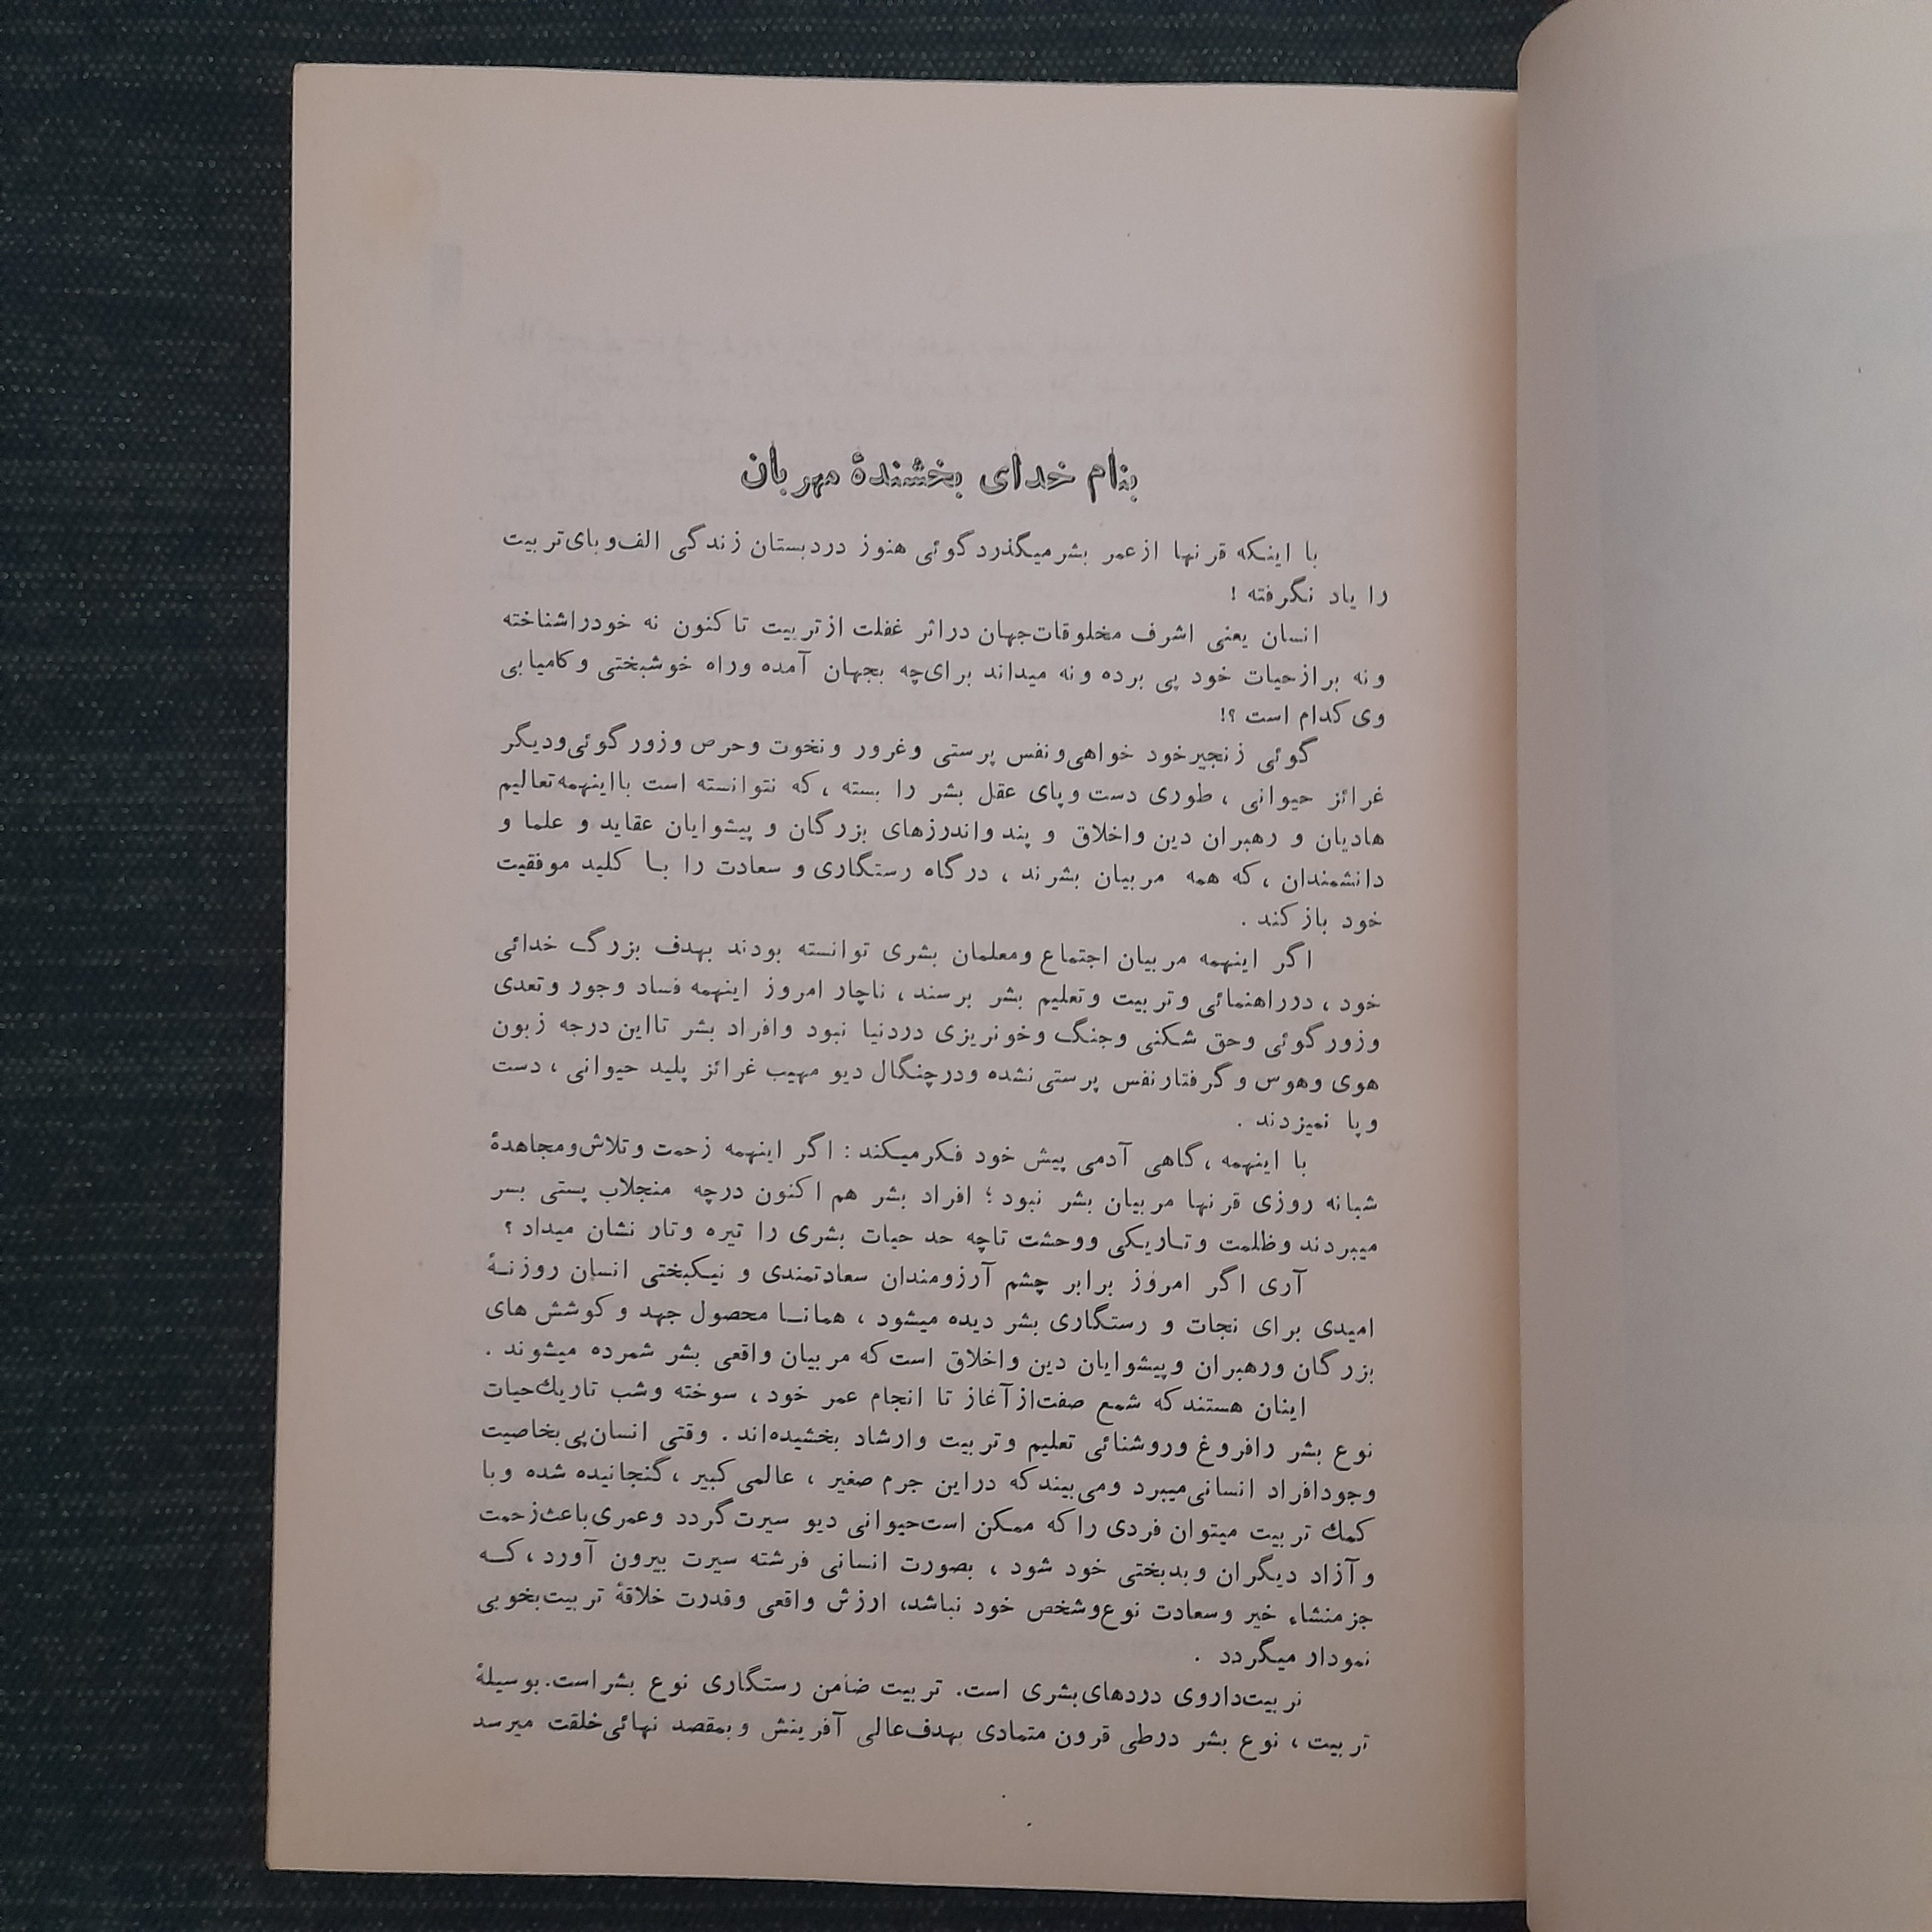 بنام خدای بخشندهٔ مهربان
با اینکه قرنها ازعمر بشرمیگذرد گوئی هنوز دردبستان زندگی الف‌وبای‌تربیت
را یاد نگرفته !
انسان یعنی اشرف مخلوقات‌جهان دراثر غفلت ازتربیت تاکنون نه خودراشناخته
ونه برازحیات خود پی برده ونه میداند برای‌چه بجهان آمده وراه خوشبختی وکامیابی
وی کدام است ؟!
گوئی زنجیرخود خواهی‌ونفس پرستی وغرور ونخوت وحرص وزورگوئی‌ودیگر
غرائز حیوانی ، طوری دست وپای عقل بشر را بسته ، که نتوانسته است بااینهمه‌تعالیم
هادیان و رهبران دین واخلاق و پند واندرزهای بزرگان و پیشوایان عقاید و علما و
دانشمندان ، که همه مربیان بشرند ، درگاه رستگاری و سعادت را بــا کلید موفقیت
خود بازکند .
اگر اینهمه مربیان اجتماع ومعلمان بشری توانسته بودند بهدف بزرگ خدائی
خود ، درراهنمائی وتربیت وتعلیم بشر برسند ، ناچار امروز اینهمه فساد وجور وتعدی
وزورگوئی وحق شکنی وجنگ وخونریزی دردنیا نبود وافراد بشر تااین درجه زبون
هوی وهوس وگرفتارنفس پرستی‌نشده ودرچنگال دیو مهیب غرائز پلید حیوانی ، دست
وپا نمیزدند .
با اینهمه ، گاهی آدمی پیش خود فکرمیکند : اگر اینهمه زحمت وتلاش‌ومجاهدهٔ
شبانه روزی قرنها مربیان بشر نبود ؛ افراد بشر هم اکنون درچه منجلاب پستی بسر
میبردند وظلمت وتــاریکی ووحشت تاچه حد حیات بشری را تیره وتار نشان میداد ؟
آری اگر امروز برابر چشم آرزومندان سعادتمندی و نیکبختی انسان روزنــهٔ
امیدی برای نجات و رستگاری بشر دیده میشود ، همانــا محصول جهد و کوشش های
بزرگان ورهبران وپیشوایان دین واخلاق است که مربیان واقعی بشر شمرده میشوند .
اینان هستندکه شمع صفت‌ازآغاز تا انجام عمر خود ، سوخته وشب تاریك‌حیات
نوع بشر رافروغ وروشنائی تعلیم وتربیت وارشاد بخشیده‌اند . وقتی انسان‌پی‌بخاصیت
وجودافراد انسانی‌میبرد ومی‌بیندکه دراین جرم صغیر ، عالمی کبیر ، گنجانیده شده وبا
کمك تربیت میتوان فردی راکه ممکن است‌حیوانی دیو سیرت گردد وعمری‌باعث‌زحمت
وآزاد دیگران وبدبختی خود شود ، بصورت انسانی فرشته سیرت بیرون آورد ، کــه
جزمنشاء خیر وسعادت نوع‌وشخص خود نباشد، ارزش واقعی وقدرت خلاقهٔ تربیت‌بخوبی
نمودار میگردد .
تربیت‌داروی دردهای‌بشری است. تربیت ضامن رستگاری نوع بشراست.بوسیلهٔ
تربیت ، نوع بشر درطی قرون متمادی بهدف‌عالی آفرینش وبمقصد نهائی‌خلقت میرسد